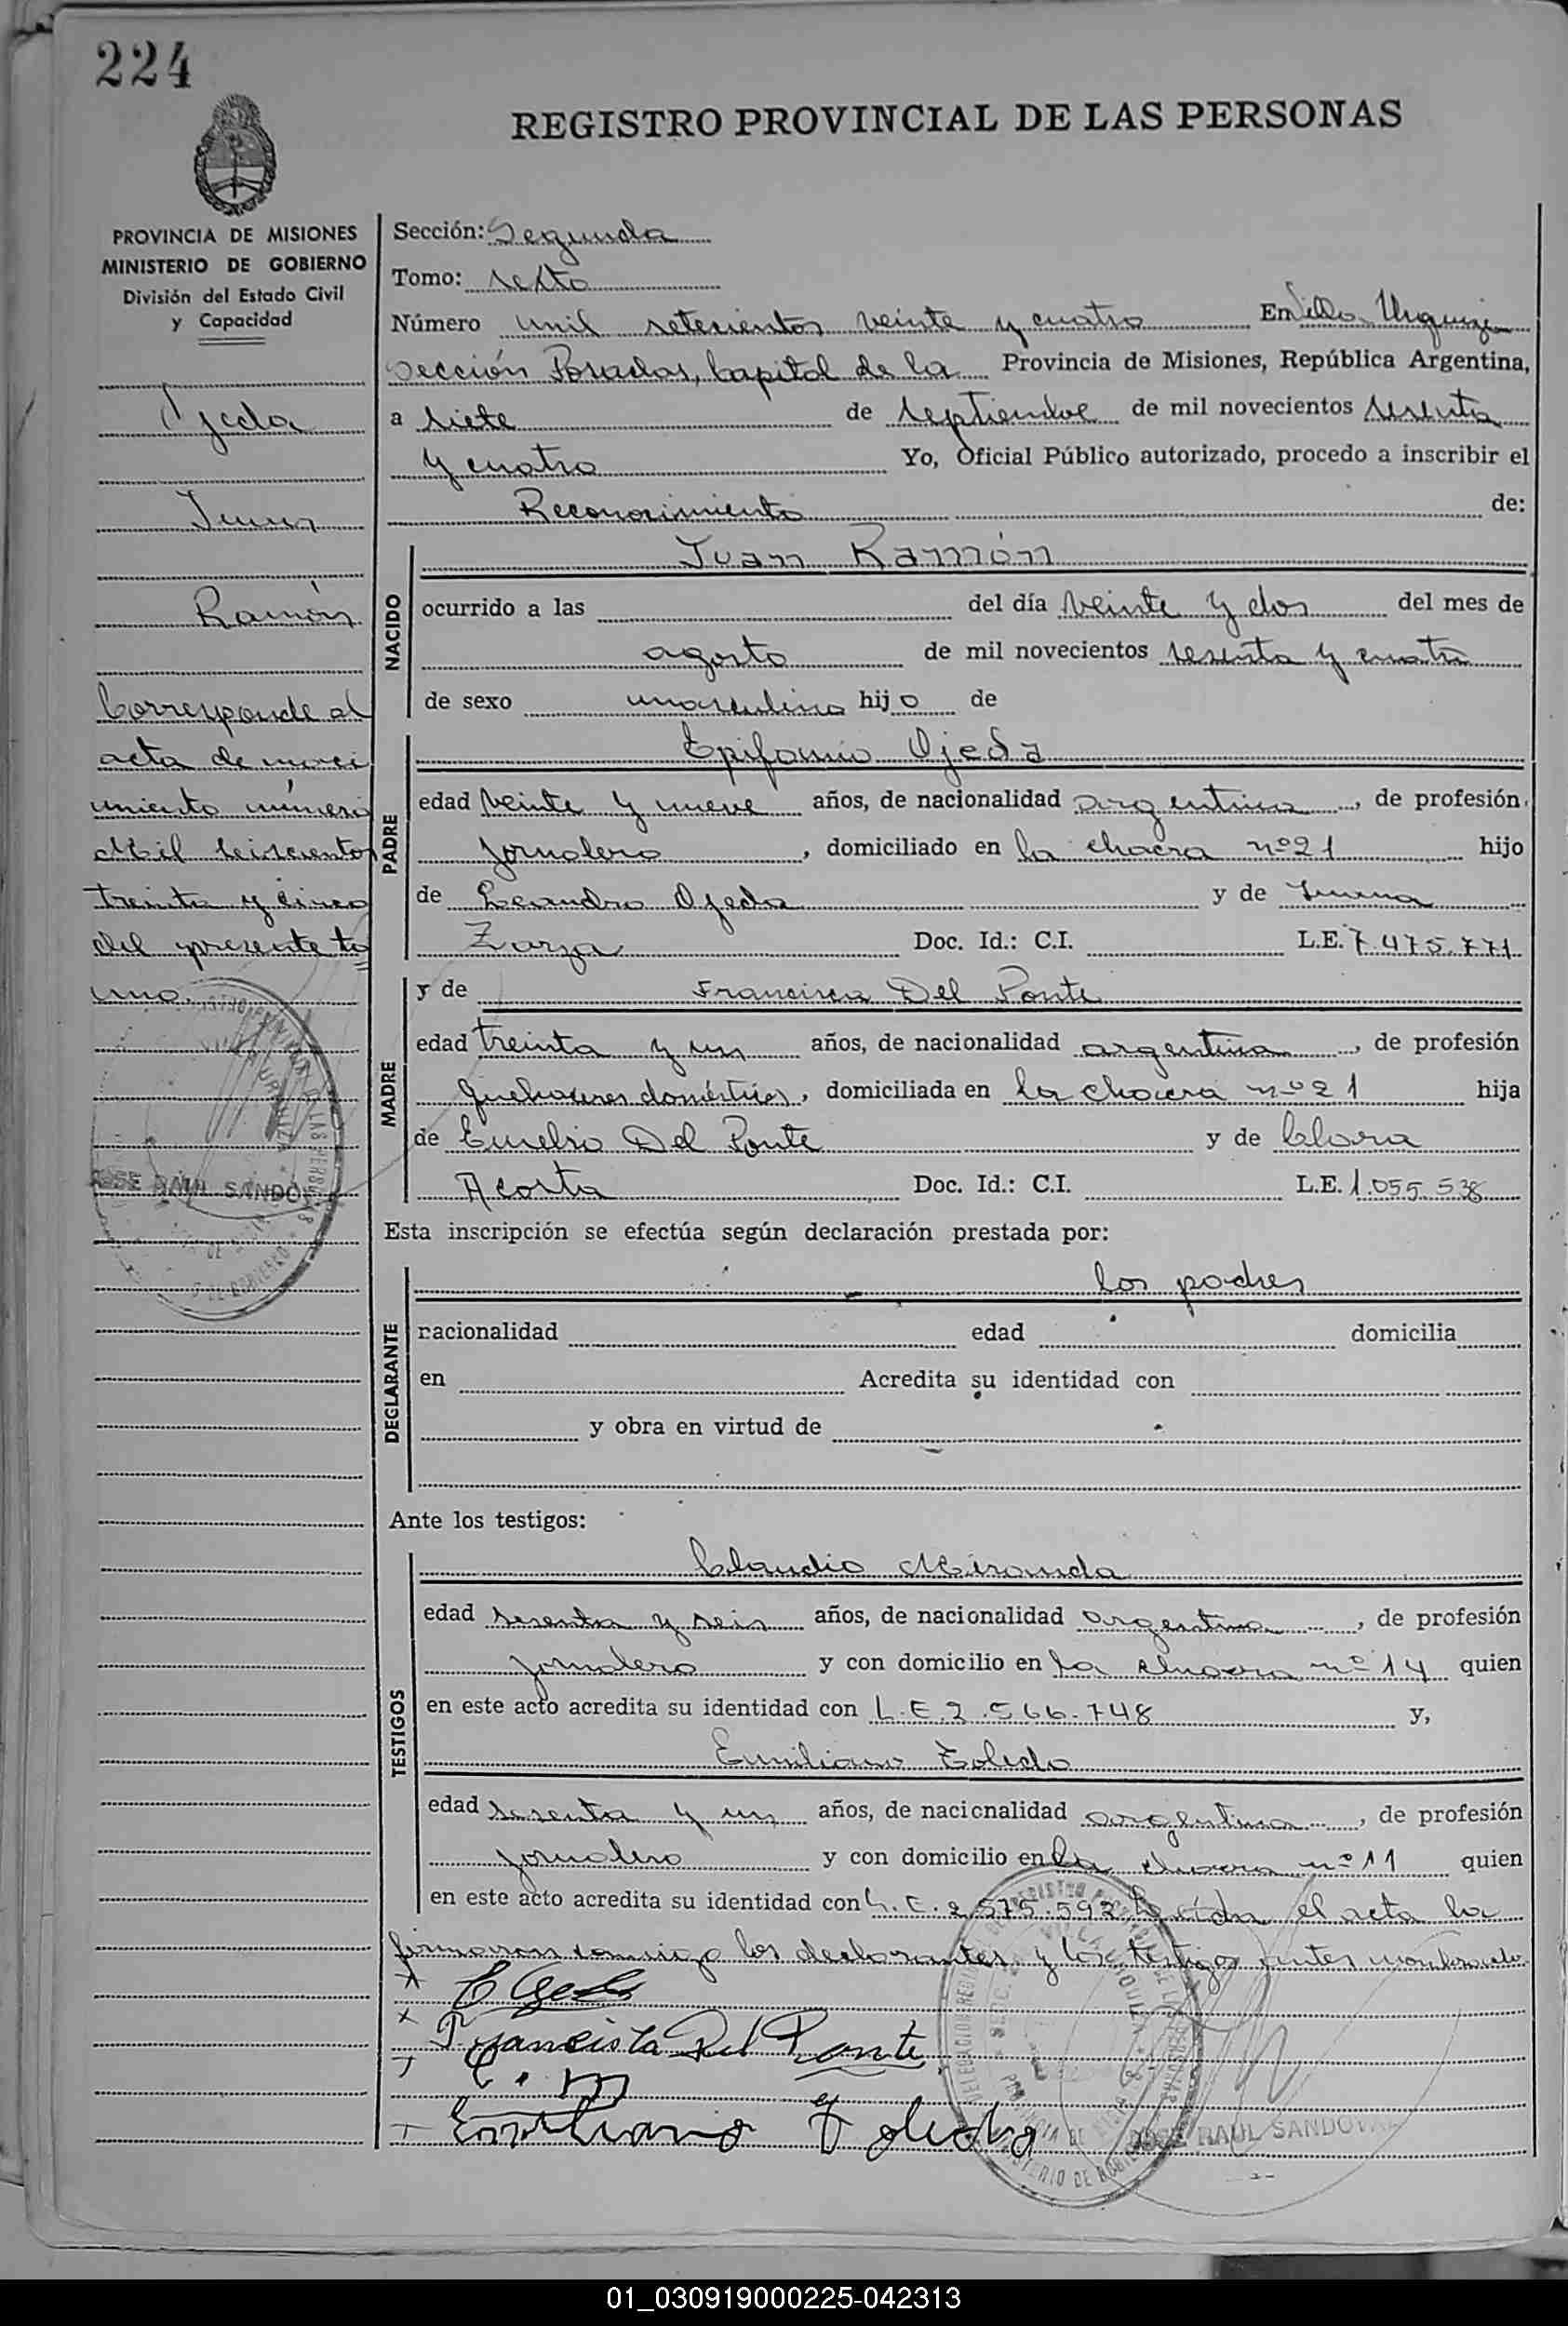 224
REGISTRO PROVINCIAL DE LAS PERSONAS
PROVINCIA DE MISIONES
MINISTERIO DE GOBIERNO
División del Estado Civil
y Capacidad
Ojeda
Juan
Ramón
Corresponde al
acta de naci
miento número
Mil seiscientos
treinta y cinco
del presente to=
mo.
JOSE RAUL SANDOVAL
Sección: Segunda
Tomo: sexto
Número mil setecientos veinte y cuatro En Villa Urquiza
Sección Posadas, Capital de la Provincia de Misiones, República Argentina,
a siete de septiembre de mil novecientos sesenta
y cuatro Yo, Oficial Público autorizado, procedo a inscribir el
Reconocimiento de:
NACIDO
Juan Ramón
ocurrido a las del día veinte y dos del mes de
agosto de mil novecientos sesenta y cuatro
de sexo masculino hijo de
PADRE
Epifanio Ojeda
edad veinte y nueve años, de nacionalidad argentina, de profesión
jornalero, domiciliado en la chacra nº 21 hijo
de Leandro Ojeda y de
Zarza Doc. Id.: C.I. L.E. 7.475.771
MADRE
y de Francisca Del Ponte
edad treinta y un años, de nacionalidad argentina, de profesión
quehaceres domésticos, domiciliada en la chacra nº 21 hija
de Eusebio Del Ponte y de Clara
Acosta Doc. Id.: C.I. L.E. 1.055.538
Esta inscripción se efectúa según declaración prestada por:
DECLARANTE
los padres
nacionalidad edad domicilia
en Acredita su identidad con
y obra en virtud de
Ante los testigos:
TESTIGOS
Claudio Miranda
edad sesenta y seis años, de nacionalidad argentina, de profesión
jornalero y con domicilio en la chacra nº 14 quien
en este acto acredita su identidad con L.E. 2.566.748 y,
Emiliano Toledo
edad sesenta y un años, de nacionalidad argentina, de profesión
jornalero y con domicilio en la chacra nº 11 quien
en este acto acredita su identidad con L.E. 2.575.592 Leída el acta la
firmaron conmigo los declarantes y los testigos antes nombrado
E Ojeda
Francisca Del Ponte
C. M
Emiliano Toledo
JOSE RAUL SANDOVAL
01_030919000225-042313